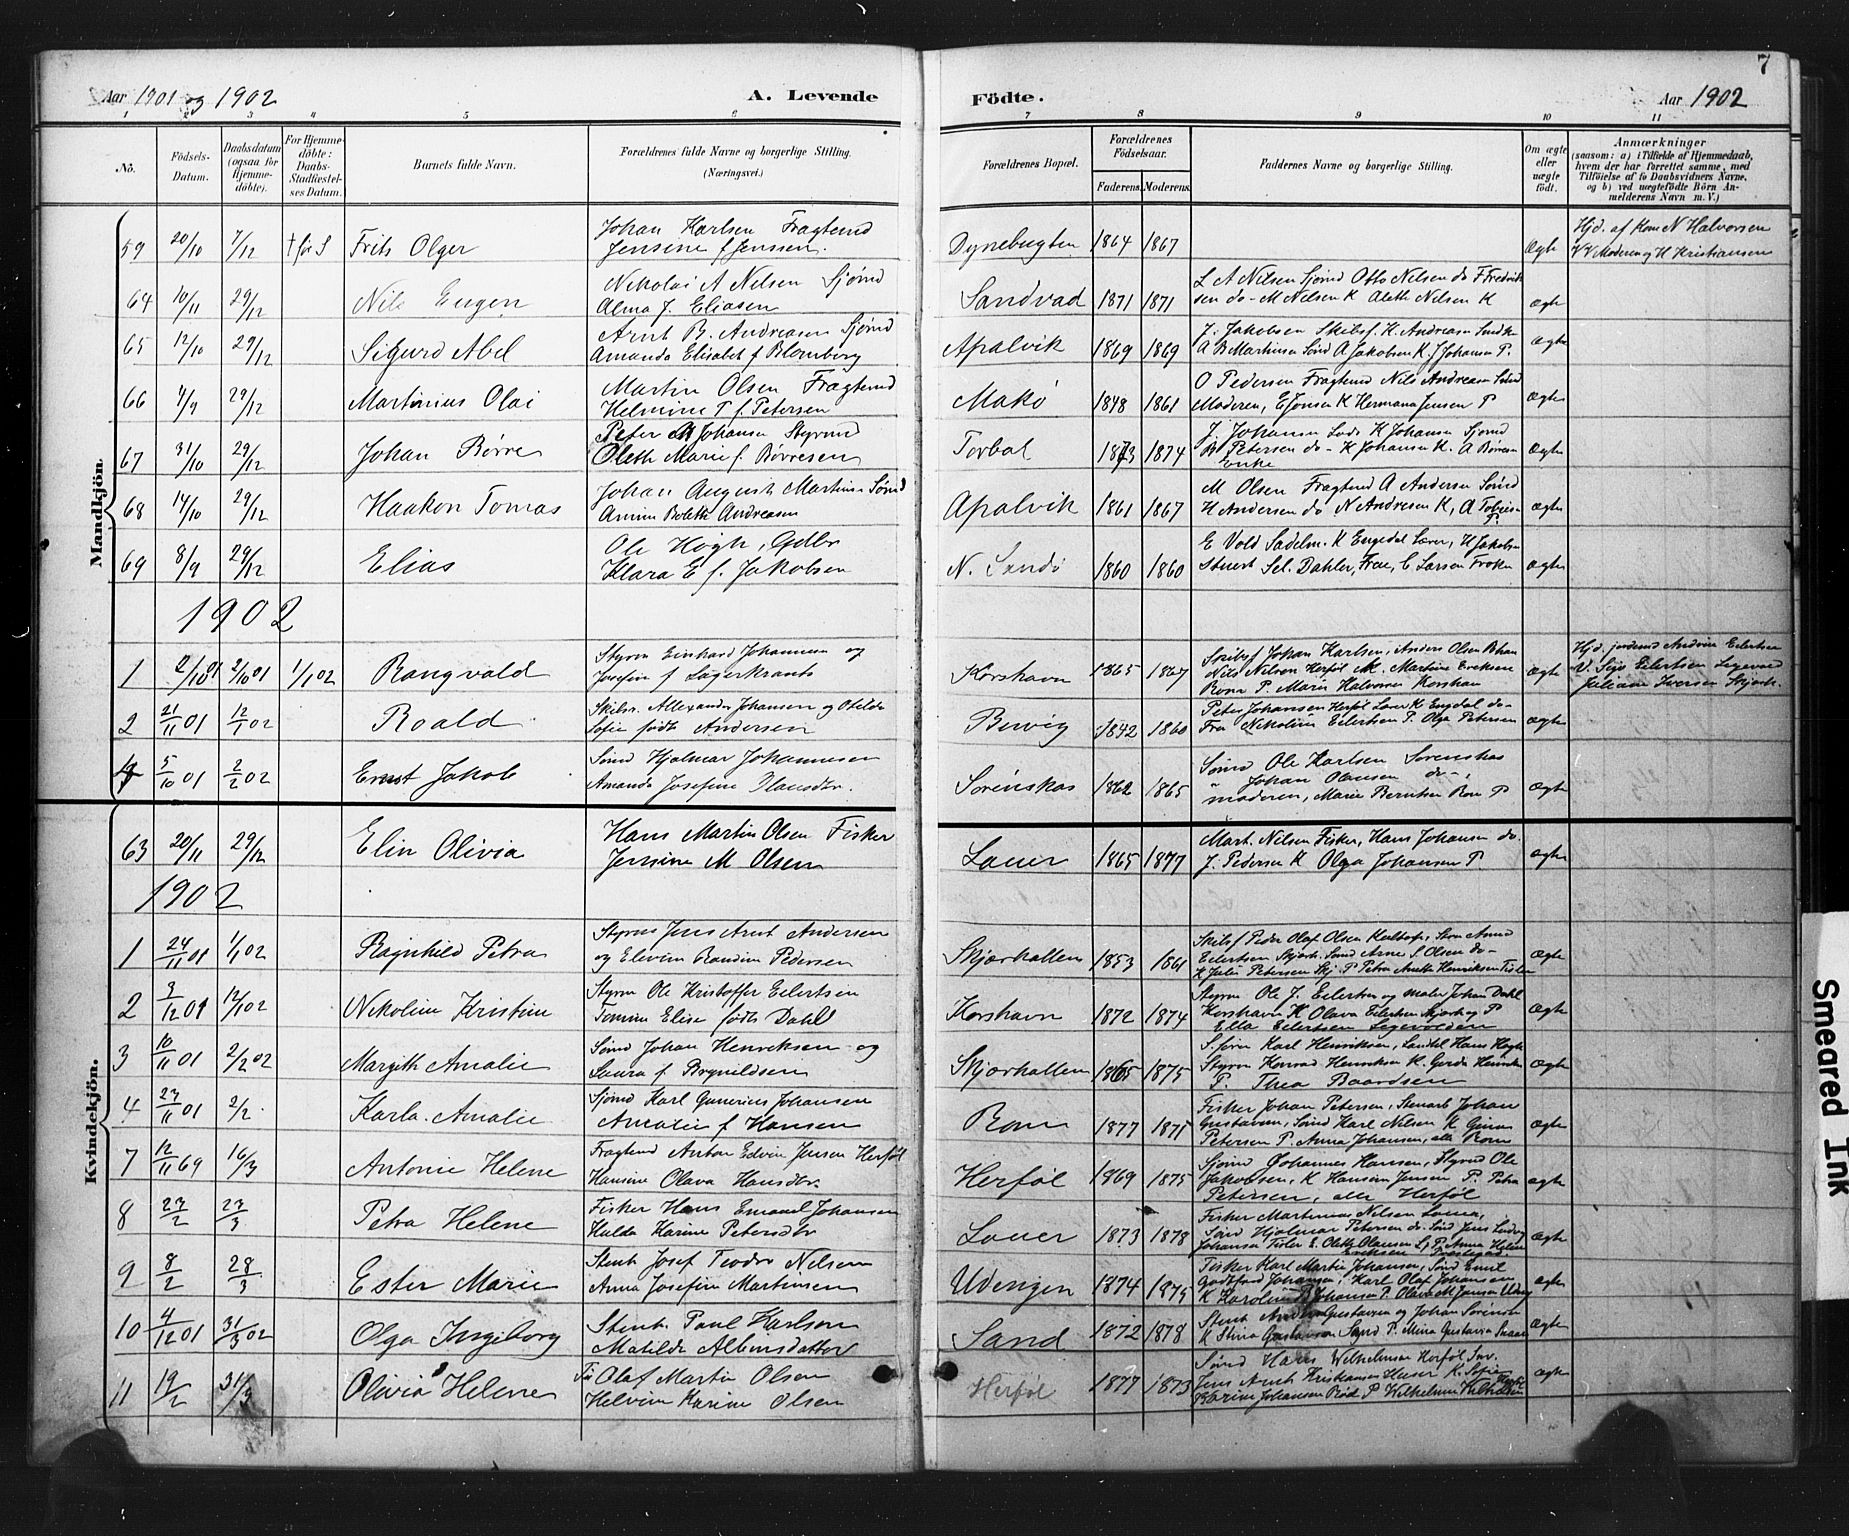 7
Aar 1901 og 1902
A. Levende
Födte.
Aar 1902
1 2 3 4 5 6 7 8 9 10 11
No.
Födsels-Datum.
Daabsdatum (ogsaa for Hjemmedöbte).
For Hjemmedöbte: Daabs-Stadfæstelses Datum.
Barnets fulde Navn.
Forældrenes fulde Navne og borgerlige Stilling.
(Næringsvei.)
Forældrenes Bopæl.
Forældrenes Födselsaar.
Faderens. Moderens.
Faddernes Navne og borgerlige Stilling.
Om ægte eller uægte födt.
Anmærkninger
(saasom: a) i Tilfælde af Hjemmedaab, hvem der har forrettet samme, med Tilföielse af to Daabsvidners Navne, og b) ved uægtefödte Börn Anmelderens Navn m. V.)
Mandkjön.
59 20/10 7/12 † før S Frits Olger
Johan Karlsen Fragtemd
Jensine f Jenssen.
Dynebugten 1864 1867 Ægte
Hjd. af Kom N Halvorsen
V V Moderen og H Kristiansen
64 10/11 29/12 Nils Eugen
Nikolai A Nelsen Sjømd
Alma J. Eliasen
Sandvad 1871 1871
L A Nilsen Sjømd Otto Nelsen do F Fredrik
sen do - M Nelsen K Aleth Nelsen K
Ægte
65 12/10 29/12 Sigurd Abel
Arnt B. Andreasen Sjømd
Amanda Elisabet f Blomberg
Apalvik 1869 1869
J. Jakobsen Skibsf. K. Andreasen
A B Martinsen Sømd A Jakobsen K. J Johansen P.
Ægte
66 4/9 29/12 Martinius Olai
Martin Olsen Fragtemd
Helmine T f. Petersen
Makø 1848 1861
O Pedersen Fragtemd Nils Andreasen Sømd
Moderen, E Jonsen K Hermana Jensen P
Ægte
67 31/10 29/12 Johan Børre
Peter M Johansen Styrmd
Oleth Marie f. Børresen
Torbal 1873 1874
J. Johansen Lods K Johansen Sjømd
B Petersen do - K Johansen K. A Børresen
enke
Ægte
68 14/10 29/12 Haakon Tomas
Johan August Martinsen Sømd
Amine Boleth Andreasen
Apalvik 1861 1867
M Olsen Fragtemd A Andersen Sømd
H Andersen do N Andresen K, A Tobiesen
P.
Ægte
69 8/9 29/12 Elias
Ole Høgh, Gdbr
Klara E f. Jakobsen
N. Sandø 1860 1860
E Vold Sadelm. K Engedal Lærer, K Jakobsen
Stuert Sel. Dahler, Frue, C Larsen Frøken
Ægte
1902
1 2/10 01 2/10 01 1/1 02 Rangvald
Styrm Einhard Johannesen og
Josefine f Lagerkrants
Korshavn 1865 1867
Skibsf Johan Karlsen, Anders Olsen
Nils Nilsen Herføl M. Martine Eriksen
Rom P. Marie Halvorsen Korshavn
Ægte
Hjd. jordemd Andrine Eilertsen
V. Sigr Eilertsen
Juliane Iversen Skjærh.
2 21/11 01 12/1 02 Roald
Skibsr. Allexander Johansen og Otilde
Sofie født Andersen
Bervig 1842 1860
Peter Johansen Herføl Lærer K Engdal do -
Fru Nikoline Eilertsen P. Olga Petersen
Ægte
5/10 01 2/2 02 Ernst Jakob
Sømd Hjalmar Johannesen
Amanda Josefine Hansdtr.
Sørenskas 1862 1865
Sømd Ole Karlsen Sørenskas
" Johan Olausen do -,
moderen, Marie Berntsen Rom P
Ægte
Kvindekjön.
63 20/11 29/12 Elin Olivia
Hans Martin Olsen Fisker
Jensine M Olsen
Lauer 1865 1877
Mart. Nilsen Fisker, Hans Johansen do.
J. Pedersen K Olga Johansen P.
Ægte
1902
1 24/11 01 1/1 02 Ragnhild Petra
Styrm Jens Arnt Andersen
og Elevine Randine Pedersen
Skjærhallen 1853 1861
Skibsf Peder Olaf Olsen
Eilertsen Skjærh. Sømd Arne S. Olsen do -
K Julie Petersen Skj. P Petra Anette Henriksen
Ægte
2 3/12 01 12/1 02 Nikoline Kristine
Styrm Ole Kristoffer Eilertsen
Tomine Elise født Dahl
Korshavn 1872 1874
Styrm Ole J. Eilertsen og maler Johan Dahl
Korshavn K Olava Eilertsen Skjærh og P
Ella Eilertsen
Ægte
3 10/11 01 2/2 02 Margith Amalie
Sømd Johan Henriksen og
Laura f. Brynildsen
Skjærhallen 1865 1875
Karl Henriksen, Hans Høgh
Styrm Konrad Henriksen K. Gerda Henriksen
P. Thea Baardsen
Ægte
4 23/11 01 2/2. Karla. Amalie
Sjømd Karl Gunerius Johansen
Amalie f Hansen
Rom 1877 1875
Fisker Johan Petersen, Stenarb Johan
Gustavsen, Sømd Karl Nilsen K
Petersen P. Anna Johansen, alle Rom
Ægte
7 12/11 69 16/3 Antonie Helene
Fragtemd Anton Edvin Jensen Herføl
Hansine Olava Hansdtr.
Herføl 1869 1875
Sjømd Johannes Hansen, Styrmd Ole
Jakobsen, K Hansine Jensen P. Petra
Petersen, alle Herføl
Ægte
8 27/2 23/3 Petra Helene
Fisker Hans Emanuel Johansen
Hulda Karine Petersdtr
Lauer 1873 1878
Fisker Martinius Nilsen Lauer,
Sømd Hjalmar Petersen do. Sømd Jens
Johansen Fisker E. Oleth Olausen P Anna Helene
Eriksen
Ægte
9 8/2 28/3 Ester Marie
Stenh Josef Teodor Nelsen
Anna Josefine Martinsen
Udengen 1874 1875
Fisker Karl Martin Johansen, Sømd Emil
Godtfred Johansen, Karl Olaf Johansen
K Karoline Johansen P. Olava M Jensen
Ægte
10 4/12 01 31/3 02 Olga Ingeborg
Stenh. Paul Karlsen
Matilde Albinsdatter
Sand 1872 1878
Stenh Gustavsen og Johan Sørensen
K Stina Gustavsen Sand P. Mina Gustavsen
Ægte
11 19/2 31/3 Olivia Helene
Olaf Martin Olsen
Helvine Karine Olsen
Herføl 1877 1873
Sømd Hans Wilhelmsen Herføl
Jens Arnt Kristiansen K. Sofie
Karine Johansen P Wilhelmine Wilhelmsen
Ægte
Smeared Ink